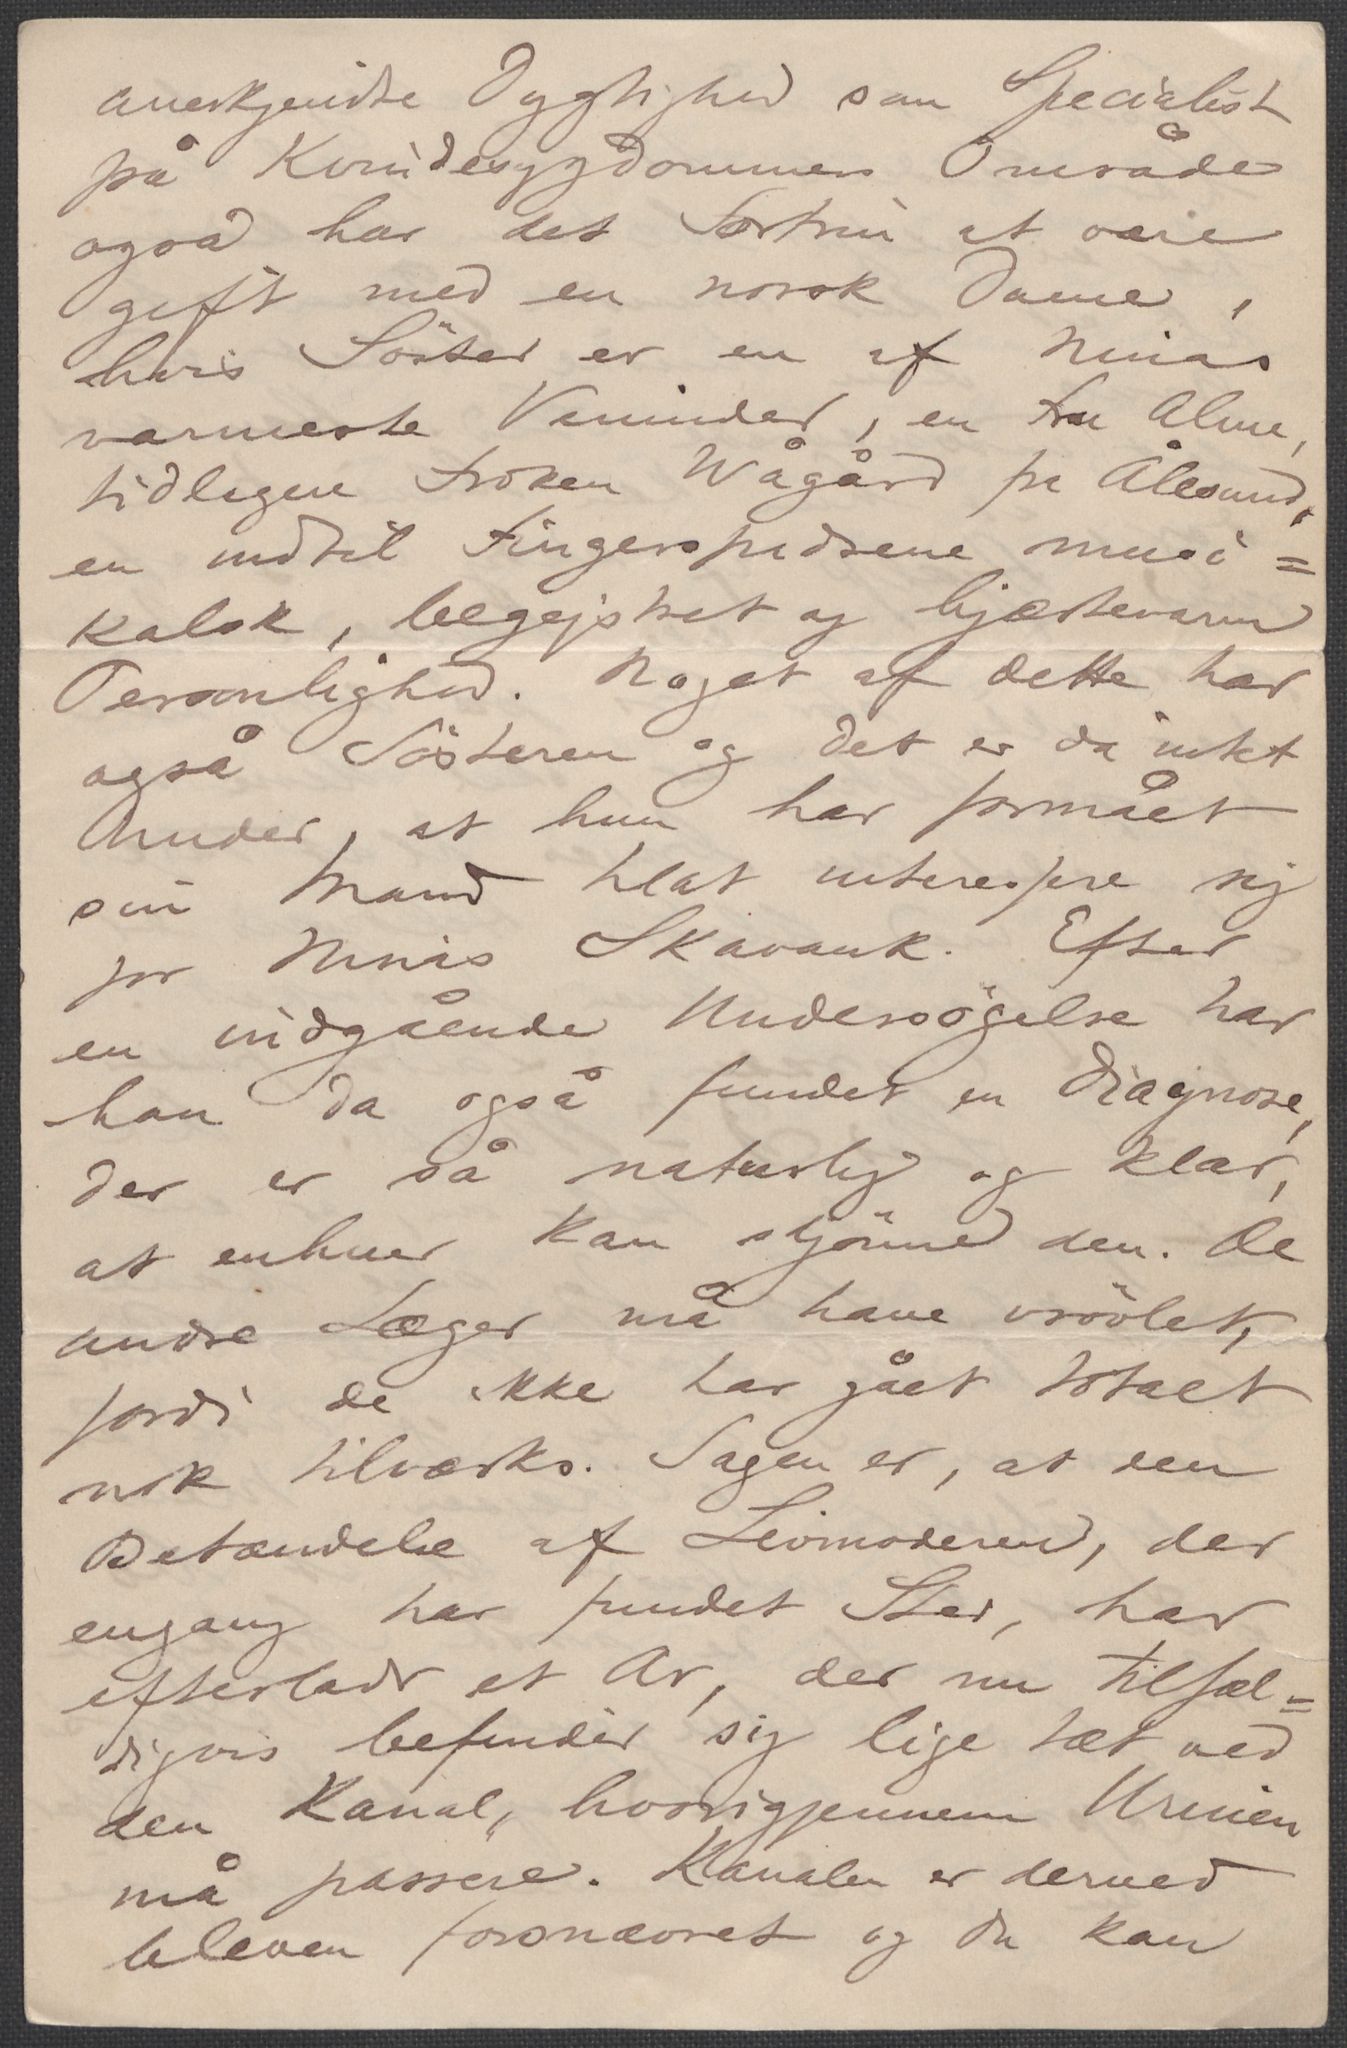 anerkjendte Dygtighed som Specialist
på Kvindesygdommens Område
også har det Fortrin at være
gift med en norsk Dame,
hvis Söster er en af Ninas
varmeste Veninder, en Fru Alme,
tidligere Fröken Wågård fra Ålesund,
en indtil Fingerspidsene musi=
kalsk, begejstret og hjertevarm
Personlighed. Noget af dette har
også Sösteren og det er da intet
Under, at hun har formået
sin Mand til at interessere sig
for Ninas Skavank. Efter
en indgående Undersögelse har
han da også fundet en Diagnose,
der er så naturlig og klar,
at enhver kan skjönne den. De
andre Læger må have vrövlet,
fordi de ikke har gået lokalt
nok tilværks. Sagen er, at den
Betændelse af Livmoderen, der
engang har fundet Sted, har
efterladt et Ar, der nu tilfæl=
digvis befinder sig lige tæt ved
den Kanal, hvorigjennem Urinen
må passere. Kanalen er derved
bleven forsnævret og du kan